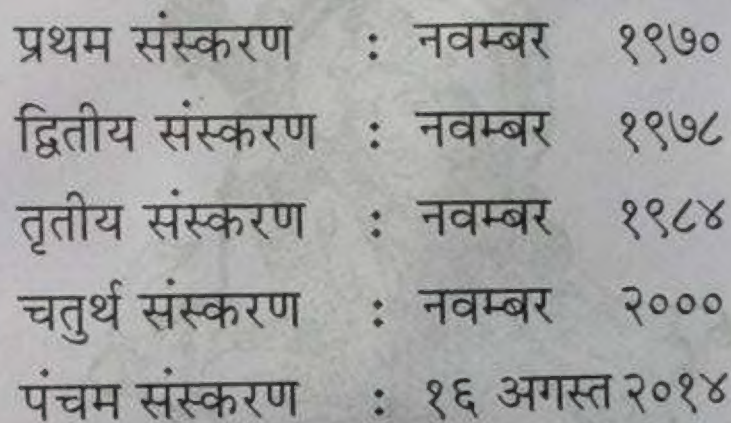 प्रथम संस्करण : नवम्बर १९७०
द्वितीय संस्करण : नवम्बर १९७८
तृतीय संस्करण : नवम्बर १९८४
चतुर्थ संस्करण : नवम्बर २०००
पंचम संस्करण : १६ अगस्त २०१४